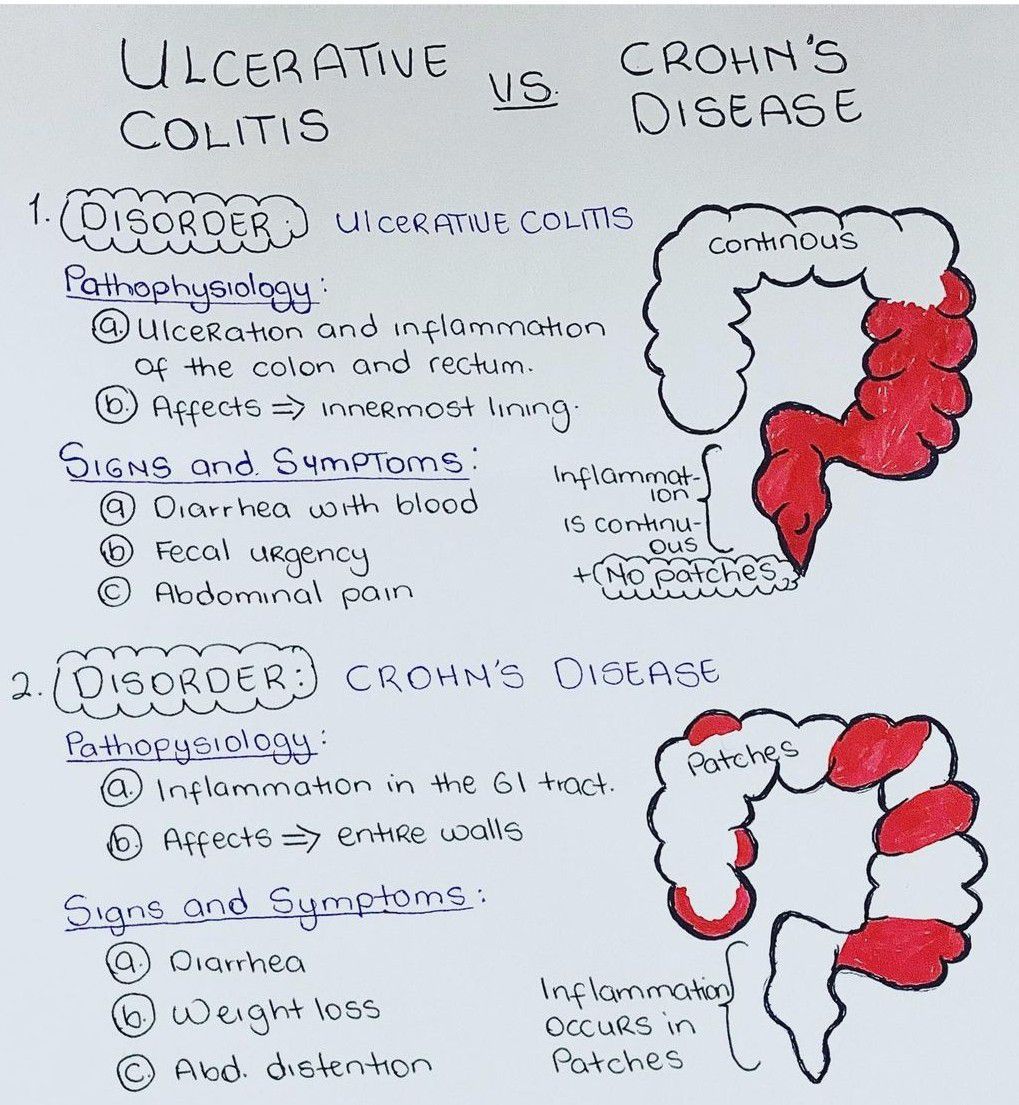 ULCERATIVE
COLITIS
VS.
CROHN'S
DISEASE
1. DISORDER: ULCERATIVE COLITIS
Pathophysiology:
a. Ulceration and inflammation
of the colon and rectum.
b. Affects => innermost lining.
Signs and Symptoms:
a Diarrhea with blood
b Fecal urgency
c Abdominal pain
Continous
Inflammat-
ion
is continu-
ous
+ No patches
2. DISORDER: CROHN'S DISEASE
Pathopysiology:
a. Inflammation in the GI tract.
b. Affects => entire walls
Signs and Symptoms:
a. Diarrhea
b. Weight loss
c. Abd. distention
Patches
Inflammation
occurs in
Patches